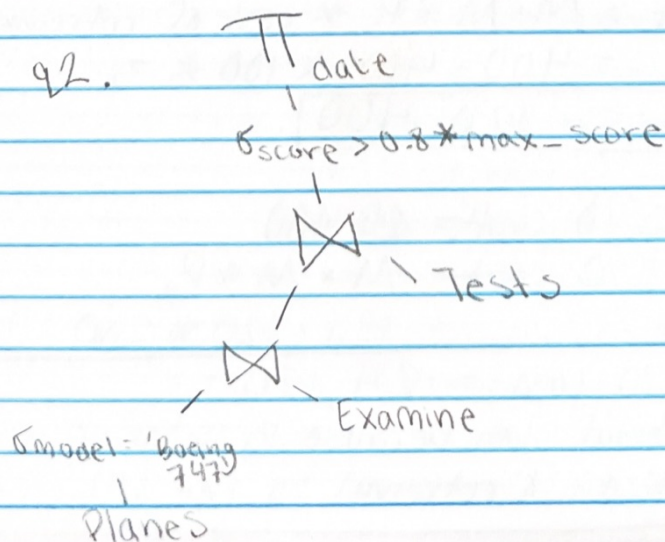 q2.
π date
σ score > 0.8 * max_score
⋈
Tests
⋈
Examine
σ model = 'Boeing
747'
Planes